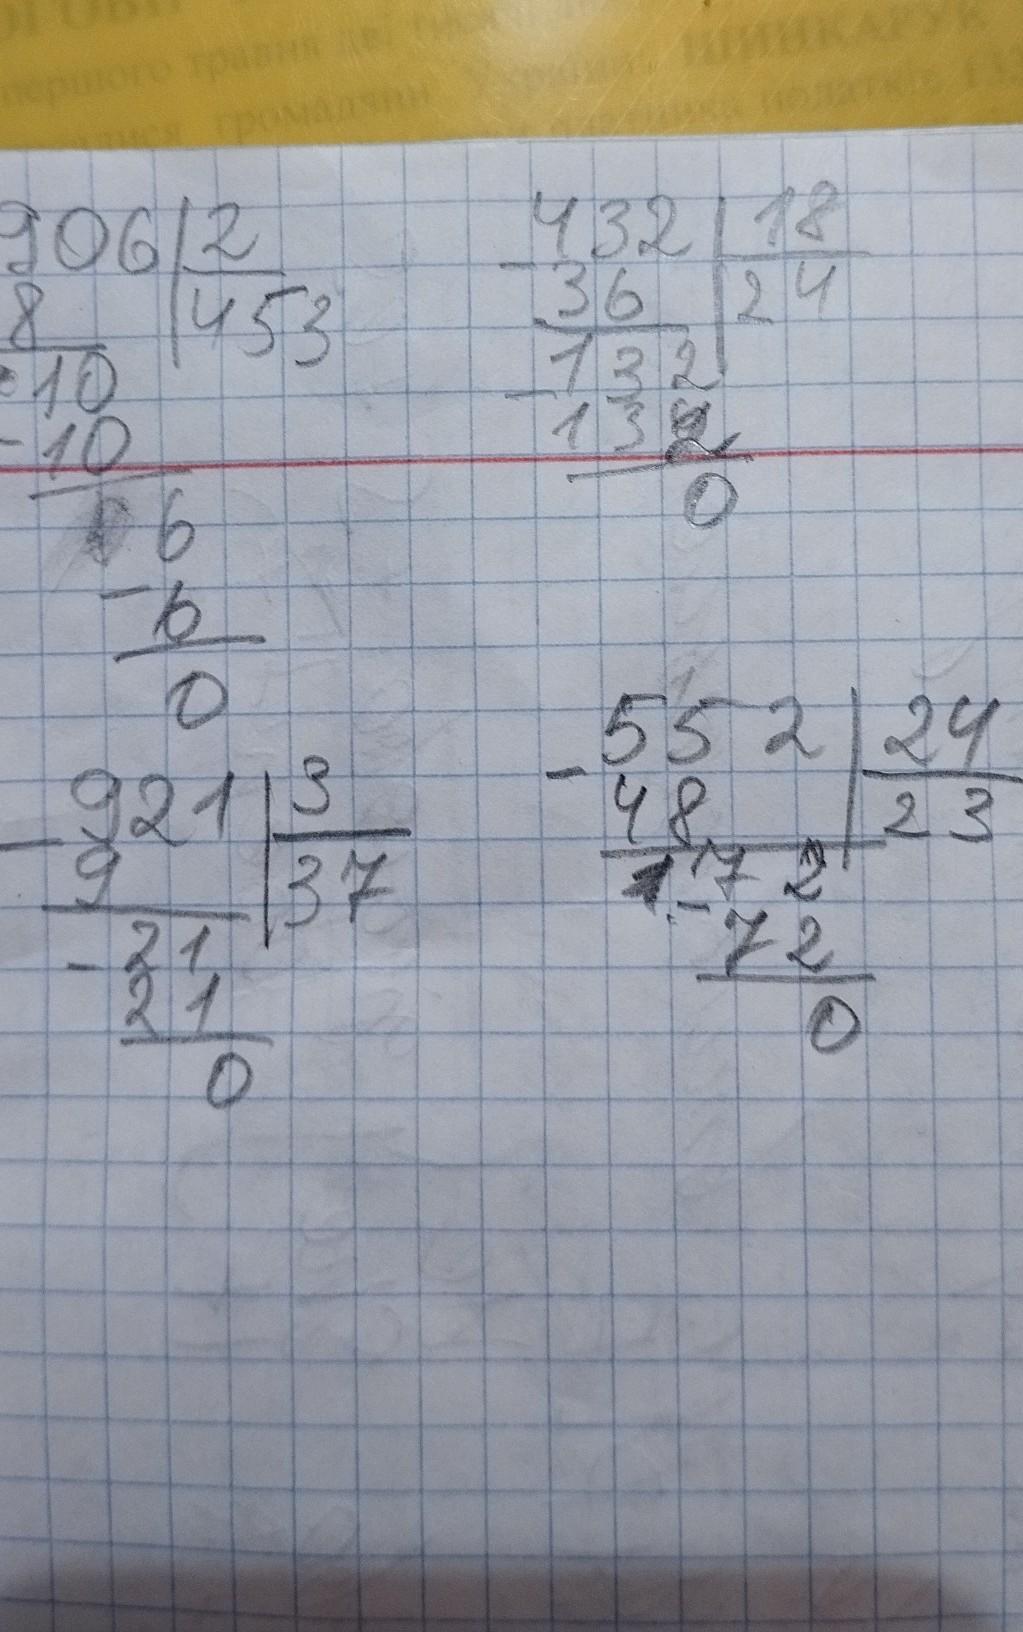 першого травня дві
громадяни України, ШИНКАРУК
податків
906 2
8 453
10
- 10
6
- 6
0
432 18
- 36 24
132
- 132
0
921 3
- 9 37
- 21
21
0
552 24
- 48 23
72
- 72
0